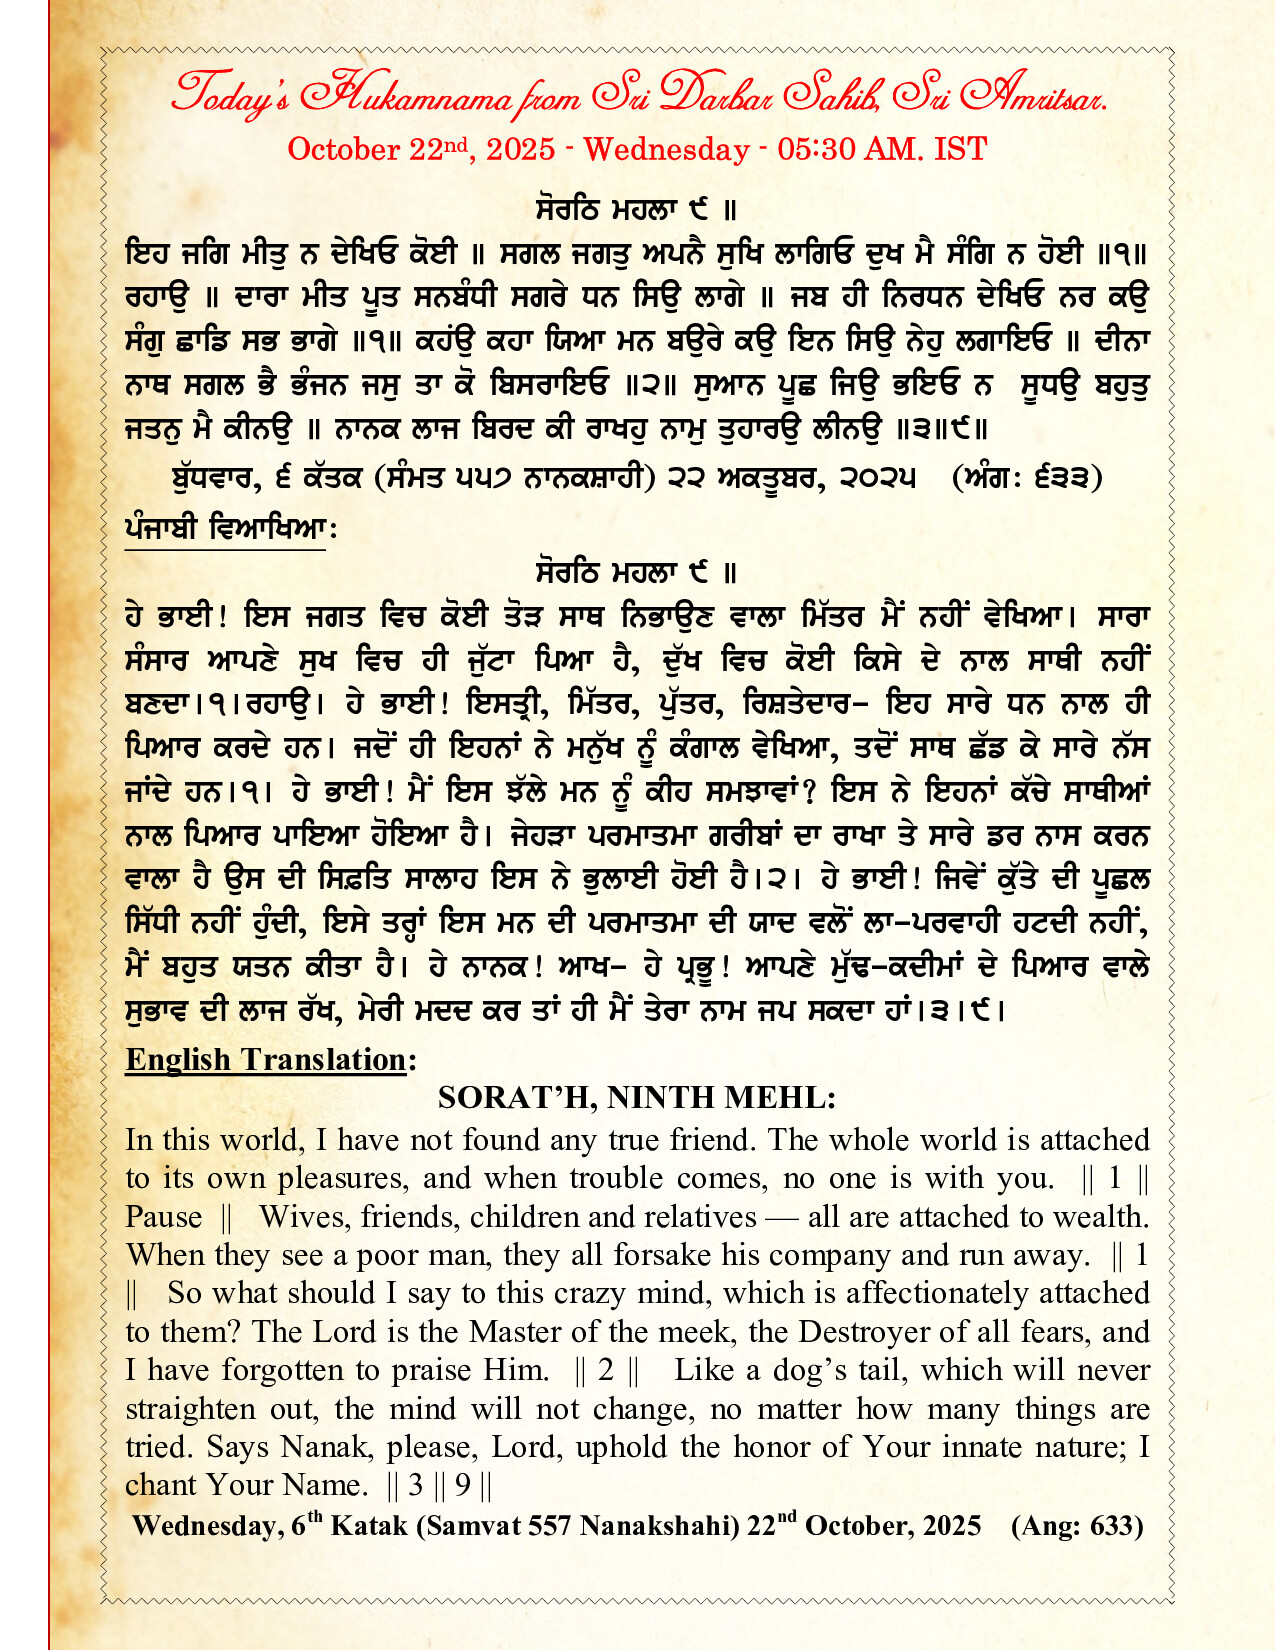 Today's Hukamnama from Sri Darbar Sahib, Sri Amritsar.
October 22nd, 2025 - Wednesday - 05:30 AM. IST
ਸੋਰਠਿ ਮਹਲਾ ੯ ॥
ਇਹ ਜਗਿ ਮੀਤੁ ਨ ਦੇਖਿਓ ਕੋਈ ॥ ਸਗਲ ਜਗਤੁ ਅਪਨੈ ਸੁਖਿ ਲਾਗਿਓ ਦੁਖ ਮੈ ਸੰਗਿ ਨ ਹੋਈ ॥੧॥
ਰਹਾਉ ॥ ਦਾਰਾ ਮੀਤ ਪੂਤ ਸਨਬੰਧੀ ਸਗਰੇ ਧਨ ਸਿਉ ਲਾਗੇ ॥ ਜਬ ਹੀ ਨਿਰਧਨ ਦੇਖਿਓ ਨਰ ਕਉ
ਸੰਗੁ ਛਾਡਿ ਸਭ ਭਾਗੇ ॥੧॥ ਕਹਂਉ ਕਹਾ ਯਿਆ ਮਨ ਬਉਰੇ ਕਉ ਇਨ ਸਿਉ ਨੇਹੁ ਲਗਾਇਓ ॥ ਦੀਨਾ
ਨਾਥ ਸਗਲ ਭੈ ਭੰਜਨ ਜਸੁ ਤਾ ਕੋ ਬਿਸਰਾਇਓ ॥੨॥ ਸੁਆਨ ਪੂਛ ਜਿਉ ਭਇਓ ਨ ਸੂਧਉ ਬਹੁਤੁ
ਜਤਨੁ ਮੈ ਕੀਨਉ ॥ ਨਾਨਕ ਲਾਜ ਬਿਰਦ ਕੀ ਰਾਖਹੁ ਨਾਮੁ ਤੁਹਾਰਉ ਲੀਨਉ ॥੩॥੯॥
ਬੁੱਧਵਾਰ, ੬ ਕੱਤਕ (ਸੰਮਤ ੫੫੭ ਨਾਨਕਸ਼ਾਹੀ) ੨੨ ਅਕਤੂਬਰ, ੨੦੨੫ (ਅੰਗ: ੬੩੩)
ਪੰਜਾਬੀ ਵਿਆਖਿਆ:
ਸੋਰਠਿ ਮਹਲਾ ੯ ॥
ਹੇ ਭਾਈ! ਇਸ ਜਗਤ ਵਿਚ ਕੋਈ ਤੋੜ ਸਾਥ ਨਿਭਾਉਣ ਵਾਲਾ ਮਿੱਤਰ ਮੈਂ ਨਹੀਂ ਵੇਖਿਆ। ਸਾਰਾ
ਸੰਸਾਰ ਆਪਣੇ ਸੁਖ ਵਿਚ ਹੀ ਜੁੱਟਾ ਪਿਆ ਹੈ, ਦੁੱਖ ਵਿਚ ਕੋਈ ਕਿਸੇ ਦੇ ਨਾਲ ਸਾਥੀ ਨਹੀਂ
ਬਣਦਾ।੧।ਰਹਾਉ। ਹੇ ਭਾਈ! ਇਸਤ੍ਰੀ, ਮਿੱਤਰ, ਪੁੱਤਰ, ਰਿਸ਼ਤੇਦਾਰ- ਇਹ ਸਾਰੇ ਧਨ ਨਾਲ ਹੀ
ਪਿਆਰ ਕਰਦੇ ਹਨ। ਜਦੋਂ ਹੀ ਇਹਨਾਂ ਨੇ ਮਨੁੱਖ ਨੂੰ ਕੰਗਾਲ ਵੇਖਿਆ, ਤਦੋਂ ਸਾਥ ਛੱਡ ਕੇ ਸਾਰੇ ਨੱਸ
ਜਾਂਦੇ ਹਨ।੧। ਹੇ ਭਾਈ! ਮੈਂ ਇਸ ਝੱਲੇ ਮਨ ਨੂੰ ਕੀਹ ਸਮਝਾਵਾਂ? ਇਸ ਨੇ ਇਹਨਾਂ ਕੱਚੇ ਸਾਥੀਆਂ
ਨਾਲ ਪਿਆਰ ਪਾਇਆ ਹੋਇਆ ਹੈ। ਜੇਹੜਾ ਪਰਮਾਤਮਾ ਗਰੀਬਾਂ ਦਾ ਰਾਖਾ ਤੇ ਸਾਰੇ ਡਰ ਨਾਸ ਕਰਨ
ਵਾਲਾ ਹੈ ਉਸ ਦੀ ਸਿਫ਼ਤਿ ਸਾਲਾਹ ਇਸ ਨੇ ਭੁਲਾਈ ਹੋਈ ਹੈ।੨। ਹੇ ਭਾਈ! ਜਿਵੇਂ ਕੁੱਤੇ ਦੀ ਪੂਛਲ
ਸਿੱਧੀ ਨਹੀਂ ਹੁੰਦੀ, ਇਸੇ ਤਰ੍ਹਾਂ ਇਸ ਮਨ ਦੀ ਪਰਮਾਤਮਾ ਦੀ ਯਾਦ ਵਲੋਂ ਲਾ-ਪਰਵਾਹੀ ਹਟਦੀ ਨਹੀਂ,
ਮੈਂ ਬਹੁਤ ਯਤਨ ਕੀਤਾ ਹੈ। ਹੇ ਨਾਨਕ! ਆਖ- ਹੇ ਪ੍ਰਭੂ! ਆਪਣੇ ਮੁੱਢ-ਕਦੀਮਾਂ ਦੇ ਪਿਆਰ ਵਾਲੇ
ਸੁਭਾਵ ਦੀ ਲਾਜ ਰੱਖ, ਮੇਰੀ ਮਦਦ ਕਰ ਤਾਂ ਹੀ ਮੈਂ ਤੇਰਾ ਨਾਮ ਜਪ ਸਕਦਾ ਹਾਂ।੩।੯।
English Translation:
SORAT'H, NINTH MEHL:
In this world, I have not found any true friend. The whole world is attached
to its own pleasures, and when trouble comes, no one is with you. || 1 ||
Pause || Wives, friends, children and relatives — all are attached to wealth.
When they see a poor man, they all forsake his company and run away. || 1
|| So what should I say to this crazy mind, which is affectionately attached
to them? The Lord is the Master of the meek, the Destroyer of all fears, and
I have forgotten to praise Him. || 2 || Like a dog's tail, which will never
straighten out, the mind will not change, no matter how many things are
tried. Says Nanak, please, Lord, uphold the honor of Your innate nature; I
chant Your Name. || 3 || 9 ||
Wednesday, 6th Katak (Samvat 557 Nanakshahi) 22nd October, 2025 (Ang: 633)